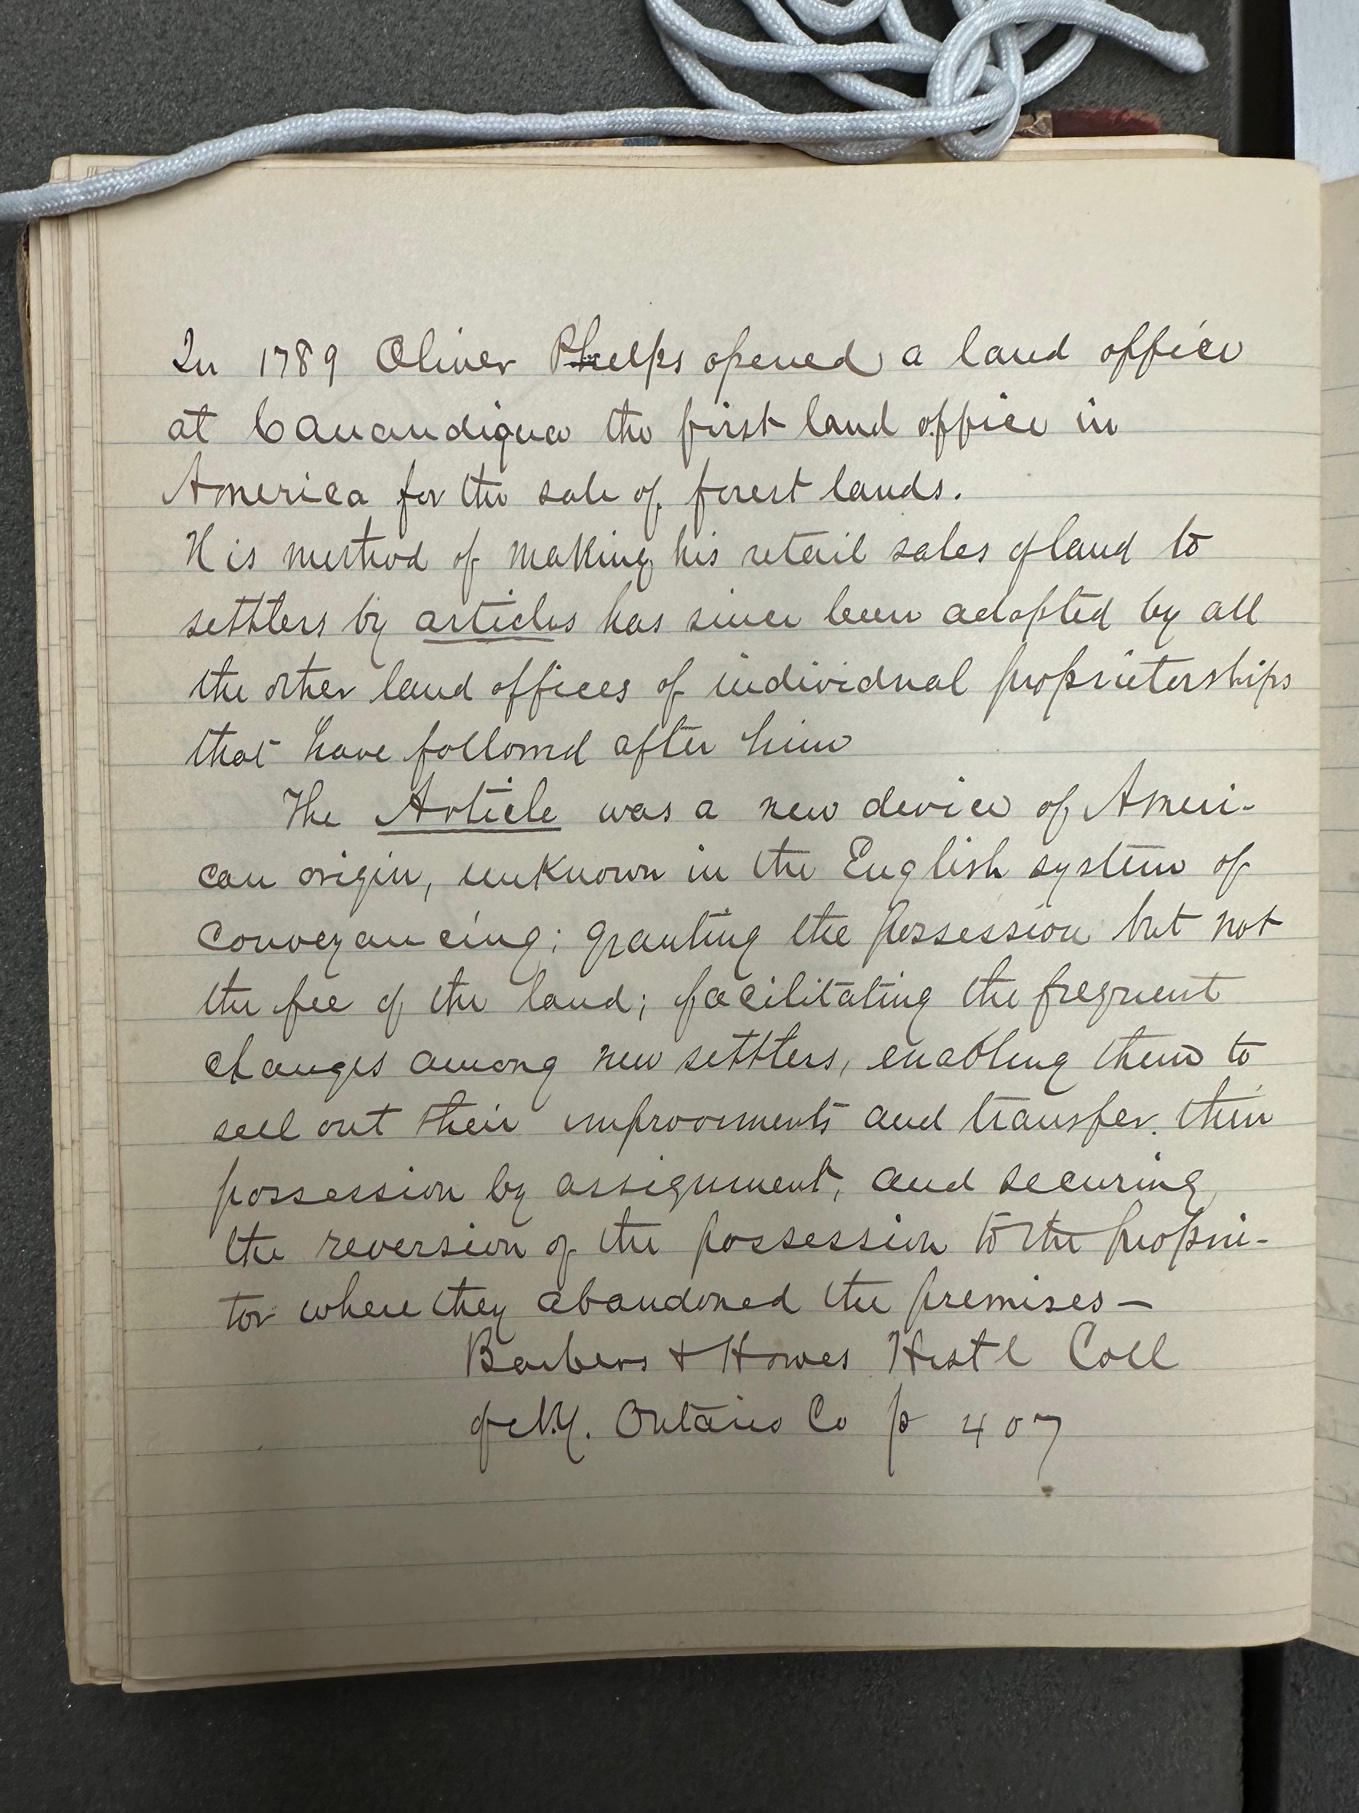 In 1789 Oliver Phelps opened a land office
at Canandigua the first land office in
America for the sale of forest lands.
His method of making his retail sales of land to
settlers by articles has since been adopted by all
the other land offices of individual proprietorships
that have followed after him
The Article was a new device of Ameri-
can origin, unknown in the English system of
conveyancing; granting the possession but not
the fee of the land; facilitating the frequent
changes among new settlers, enabling them to
sell out their improvements and transfer their
possession by assignment, and securing
the reversion of the possession to the proprie-
tor where they abandoned the premises —
Barbers & Howes Hist'l Coll
of N.Y. Ontario Co p 407